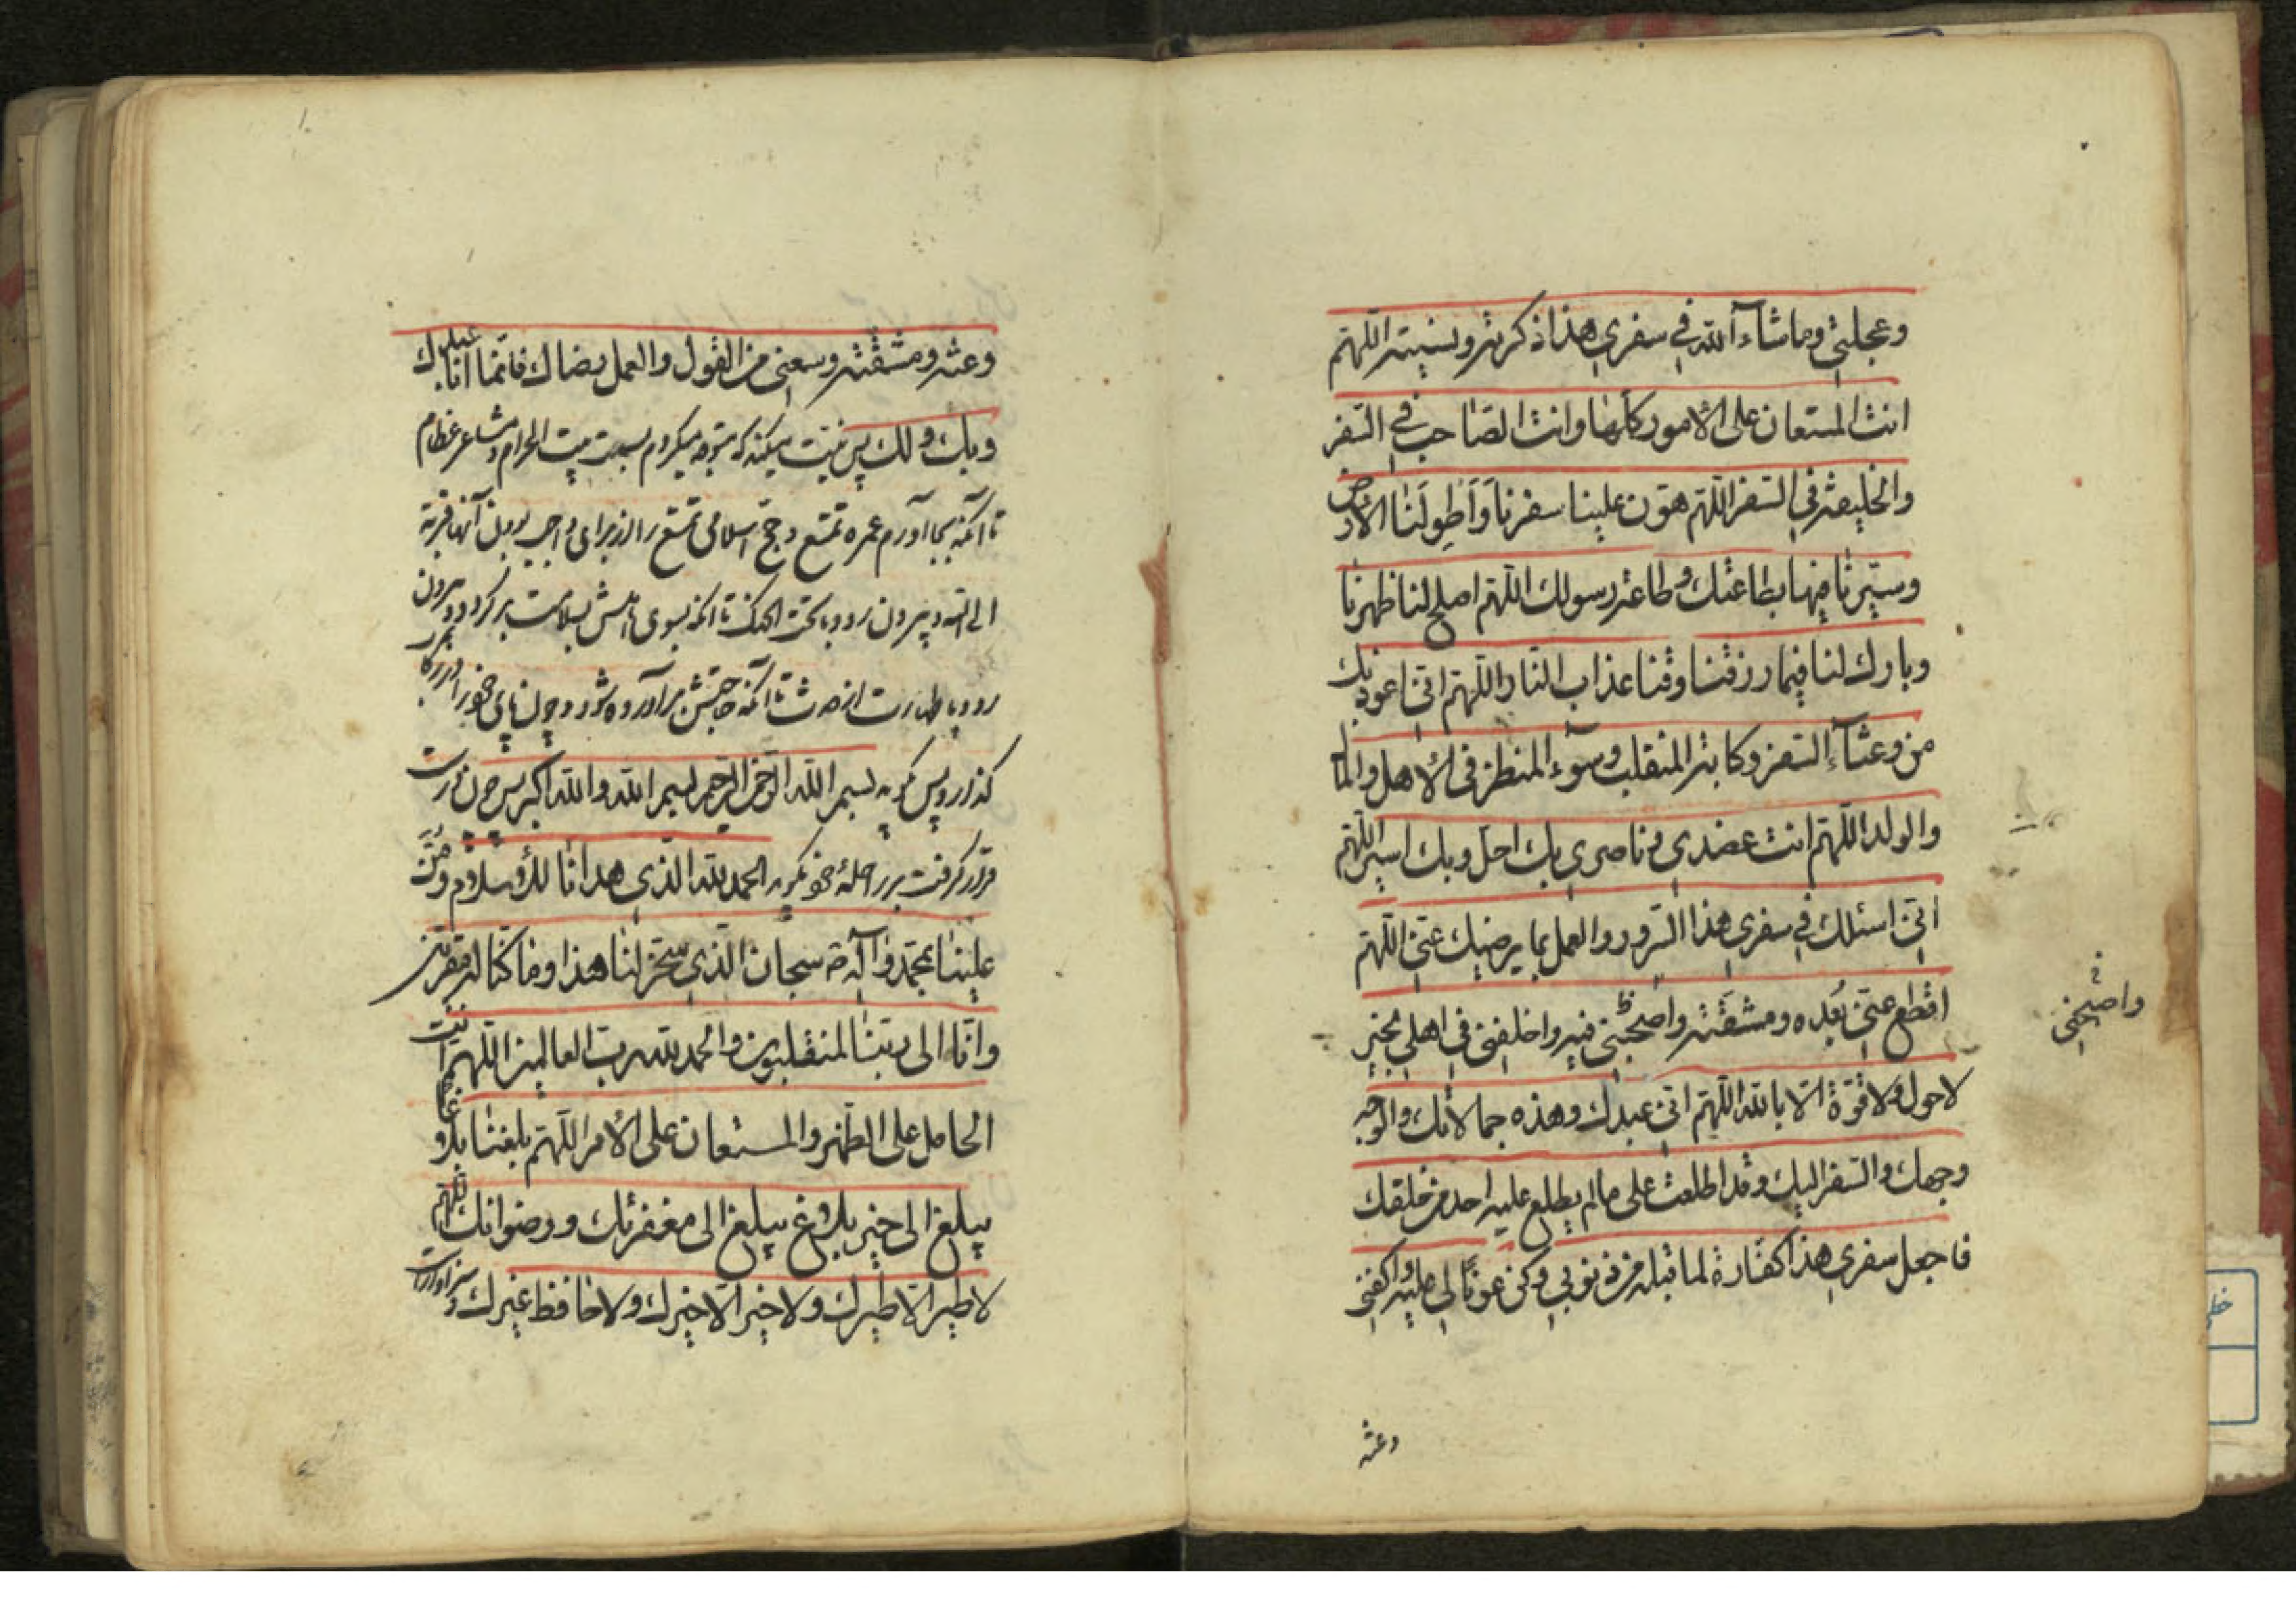 وعجلتي وما شاء الله في سفري هذا ذكرته ونسيته اللهم
انت المستعان على الامور كلها وانت الصاحب في السفر
والخليفة في السفر اللهم هون علينا سفرنا واطو لنا الارض
وسيرنا فيها بطاعتك وطاعة رسولك اللهم اصلح لنا ظهرنا
وبارك لنا فيما رزقتنا وقنا عذاب النار اللهم اني اعوذ بك
من وعثاء السفر وكابة المنقلب وسوء المنظر في الاهل والمال
والولد اللهم انت عضدي وناصري بك احل وبك اسير اللهم
اني اسئلك في سفري هذا السرور والعمل بما يرضيك عني اللهم
اقطع عني بعده ومشقته واصحبني فيه واخلفني في اهلي بخير
واصحبني
لا حول ولا قوة الا بالله اللهم اني عبدك وهذه حملانك والوجه
وجهك والسفر اليك وقد اطلعت على ما لم يطلع عليه احد من خلقك
فاجعل سفري هذا كفارة لما قبله من ذنوبي وكن عونا لي عليه واكفني
وعثه
وعثه ومشقته وسعني من القول والعمل رضاك فانما انا عبدك
وبك ولك پس نیت میکند که متوجه میکردم بسمت بیت الحرام و مشاعر عظام
تا آنکه بجا آورم عمره تمتع و حج اسلامی تمتع را از برای واجب بودن آنها قربة
الی الله و بیرون رود با تحت الحنک تا آنکه بسوی اهلش بسلامت برکردد و بیرون
رود با طهارت از حدث تا آنکه حاجتش برآورده شود و چون پای خود را در رکاب
کذارد پس کوید بسم الله الرحمن الرحیم بسم الله والله اکبر پس چون راست
قرار کرفت بر راحلهٔ خود کوید الحمد لله الذي هدانا للاسلام ومن
علينا بمحمد وآله سبحان الذي سخر لنا هذا وما كنا له مقرنين
وانا الى ربنا لمنقلبون والحمد لله رب العالمين اللهم انت
الحامل على الظهر والمستعان على الامر اللهم بلغنا بلاغا
يبلغ الى خير بلاغ يبلغ الى مغفرتك ورضوانك اللهم
لا طير الا طيرك ولا خير الا خيرك ولا حافظ غيرك